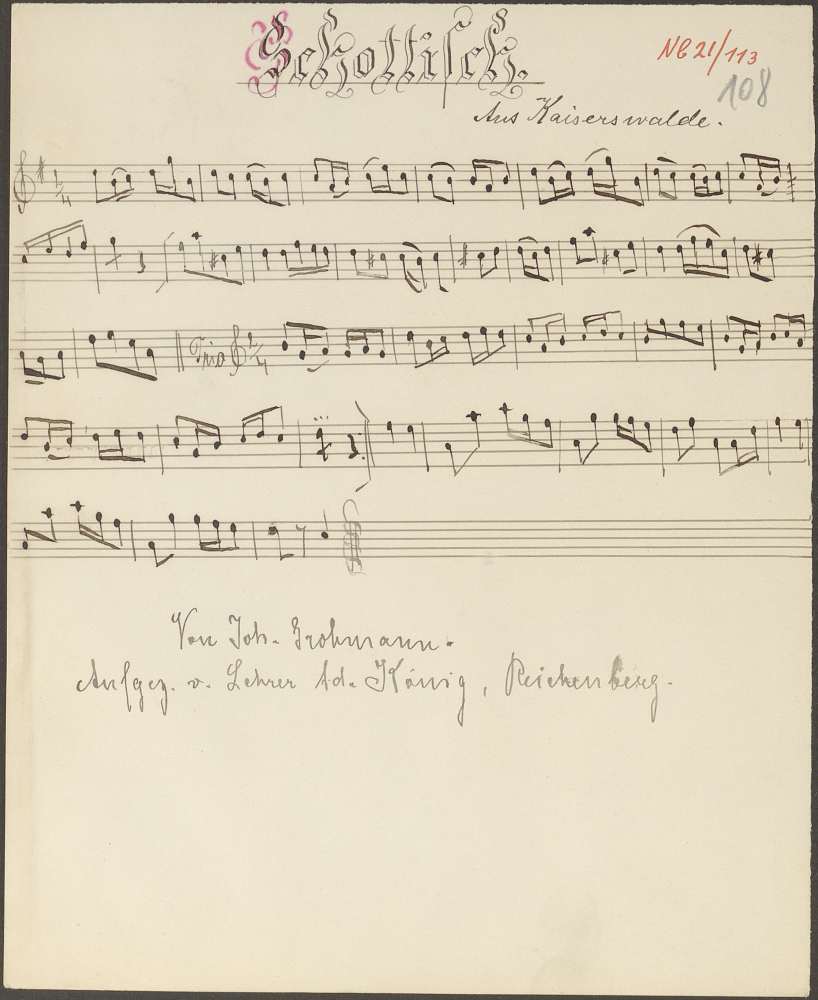 Schottisch.
NB 21/113
108
Aus Kaiserswalde.
2/4
Trio 2/4
Von Joh. Grohmann.
Aufgez. v. Lehrer Ad. König, Reichenberg.